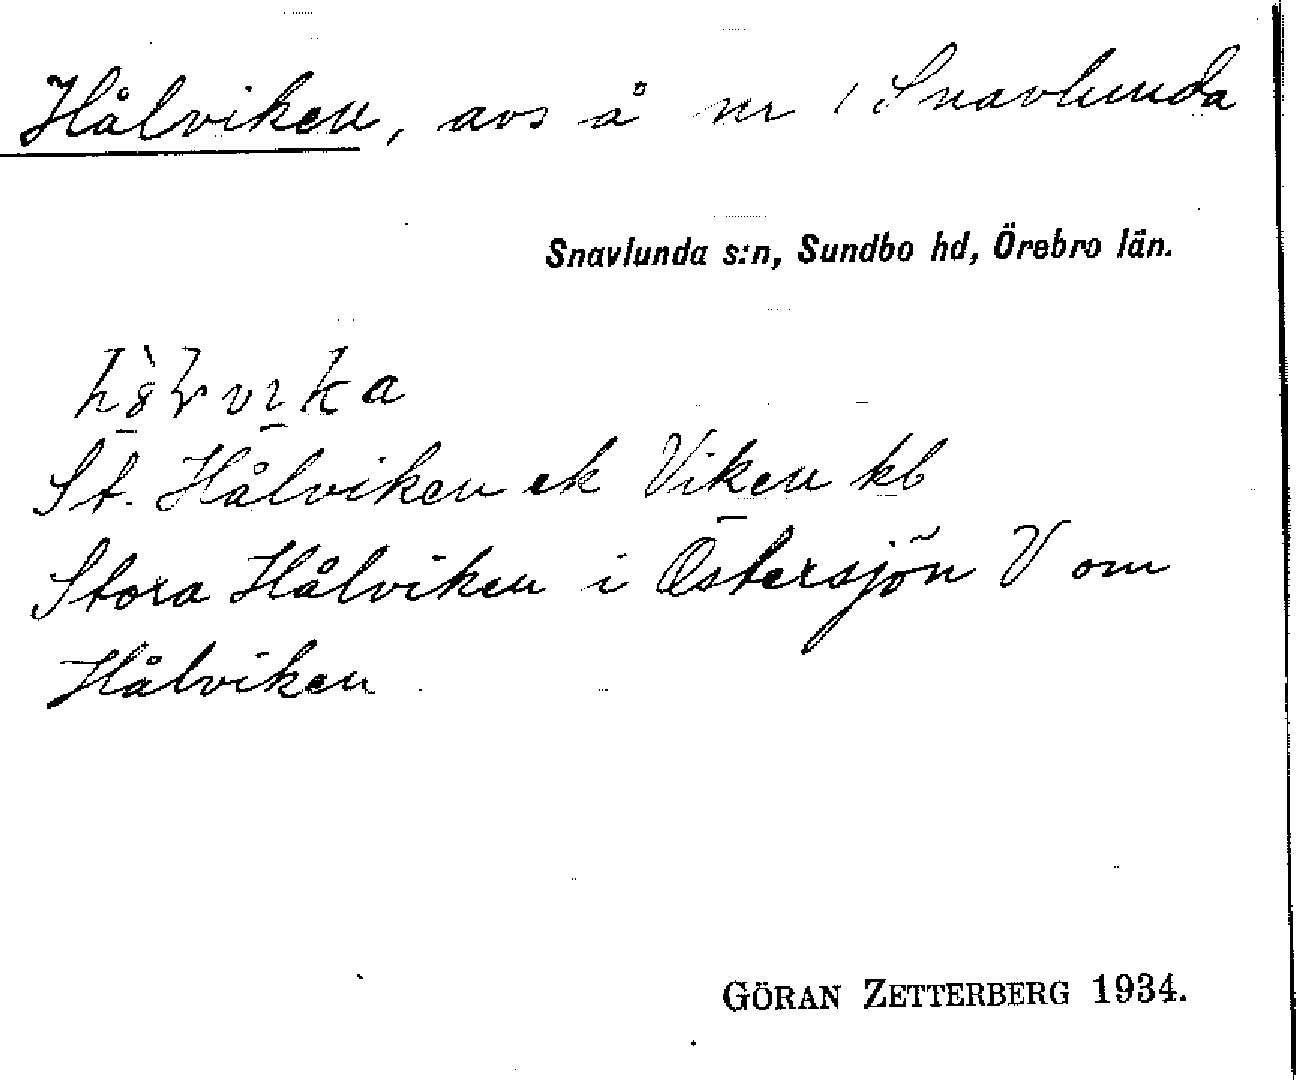 Hålviken, avs å nr 1 Snavlunda
Snavlunda s:n, Sundbo hd, Örebro län.
St. Hålviken ek Viken kb
Stora Hålviken i Östersjön V om
Hålviken
GÖRAN ZETTERBERG 1934.